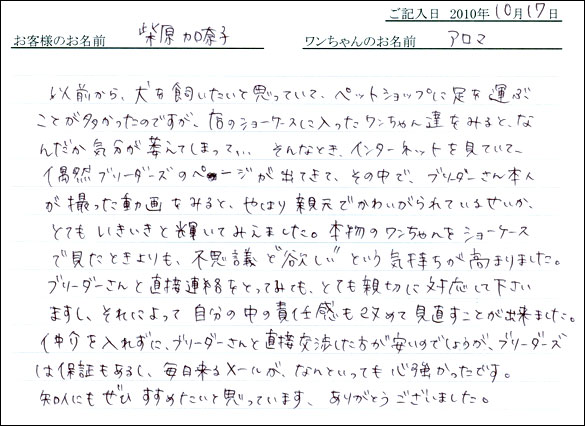 ご記入日 2010年10月17日
お客様のお名前 柴原 加奈子 ワンちゃんのお名前 アロマ
以前から、犬を飼いたいと思っていて、ペットショップに足を運ぶ
ことが多かったのですが、店のショーケースに入ったワンちゃん達をみると、な
んだか気分が萎えてしまって、、、 そんなとき、インターネットを見ていて、
偶然ブリーダーズのページが出てきて、その中で、ブリーダーさん本人
が撮った動画をみると、やはり親元でかわいがられているせいか、
とてもいきいきと輝いてみえました。本物のワンちゃんをショーケース
で見たときよりも、不思議と"欲しい"という気持ちが高まりました。
ブリーダーさんと直接連絡をとってみても、とても親切に対応して下さい
ますし、それによって自分の中の責任感も改めて見直すことが出来ました。
仲介を入れずに、ブリーダーさんと直接交渉した方が安いのでしょうが、ブリーダーズ
は保証もあるし、毎日来るメールが、なんといっても心強かったです。
知人にもぜひすすめたいと思っています、ありがとうございました。